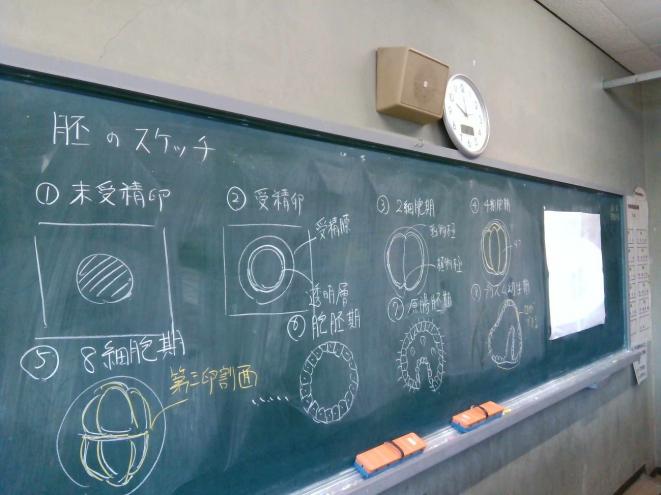 胚のスケッチ
① 未受精卵
② 受精卵
受精膜
透明層
③ 2細胞期
動物極
植物極
④ 4細胞期
⑤ 8細胞期
第三卵割面
......
⑥ 胞胚期
⑦ 原腸胚期
⑧ プルテウス幼生期